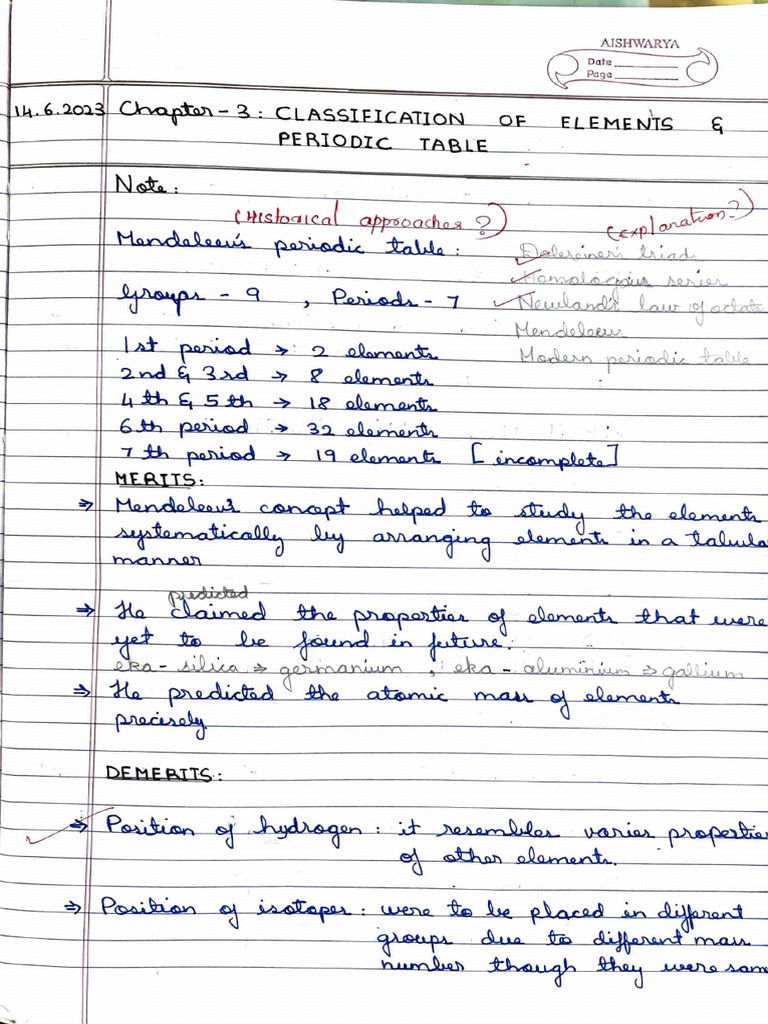 AISHWARYA
Date
Page
14.6.2023 Chapter - 3 : CLASSIFICATION OF ELEMENTS &
PERIODIC TABLE
Note :
(Historical approaches ?) (explanation ?)
Mendeleev's periodic table : Dobereiner's triad
Homologous series
Groups - 9 , Periods - 7 Newland's law of octate
Mendeleeus
1st period → 2 elements Modern periodic table
2nd & 3rd → 8 elements
4th & 5th → 18 elements
6th period → 32 elements
7th period → 19 elements [incomplete]
MERITS :
⇒ Mendeleev's concept helped to study the elements
systematically by arranging elements in a tabula
manner
predicted
⇒ He claimed the properties of elements that were
yet to be found in future.
eka - silica ⇒ germanium , eka - aluminium ⇒ gallium
⇒ He predicted the atomic mass of elements
precisely
DEMERITS :
⇒ Position of hydrogen : it resembles varies propertie
of other elements.
⇒ Position of isotopes : were to be placed in different
groups due to different mass
number though they were same